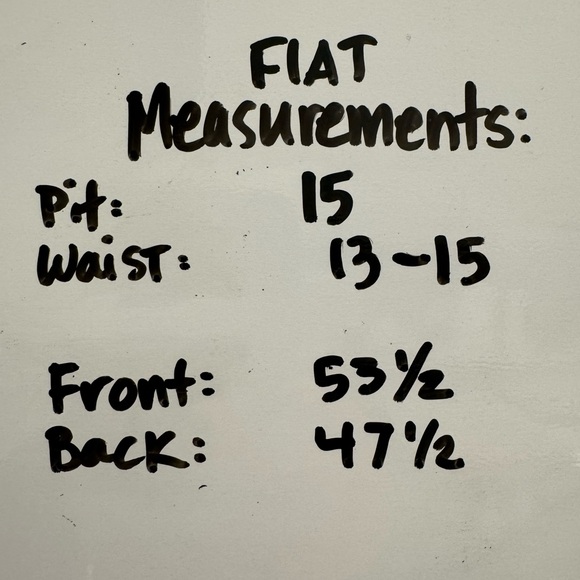 FlAT
Measurements:
Pit: 15
Waist: 13-15
Front: 53 1/2
Back: 47 1/2